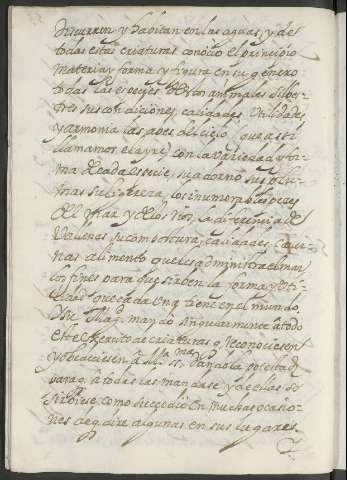 discurren, y habitan en las aguas, y de
todas estas criaturas conocio el principio
materia y forma y figura en su genero
todas las especies de los animales silves-
tres sus condiciones, calidades, utilidades
y armonia las aves del cielo (que asi
llamamos el ayre) con la variedad la for-
ma de cada especie, su adorno sus plu-
mas su ligereza, los inumerables peces
del mar y de los rios, la diferencia de
Vallenas su compostura, calidades, caver-
nas alimento que les administra el mar
los fines para que sirben la forma y uti-
lidad que cada una tiene en el mundo,
Y su Mag. mando singularmente a todo
este exercito de criaturas q reconociesen
y obedeciesen a Ma. ssma. dandola potestad
para q. a todas las mandase y de ellas se
sirviese como sucedio en muchas ocasio-
nes de q dire algunas en sus lugares.